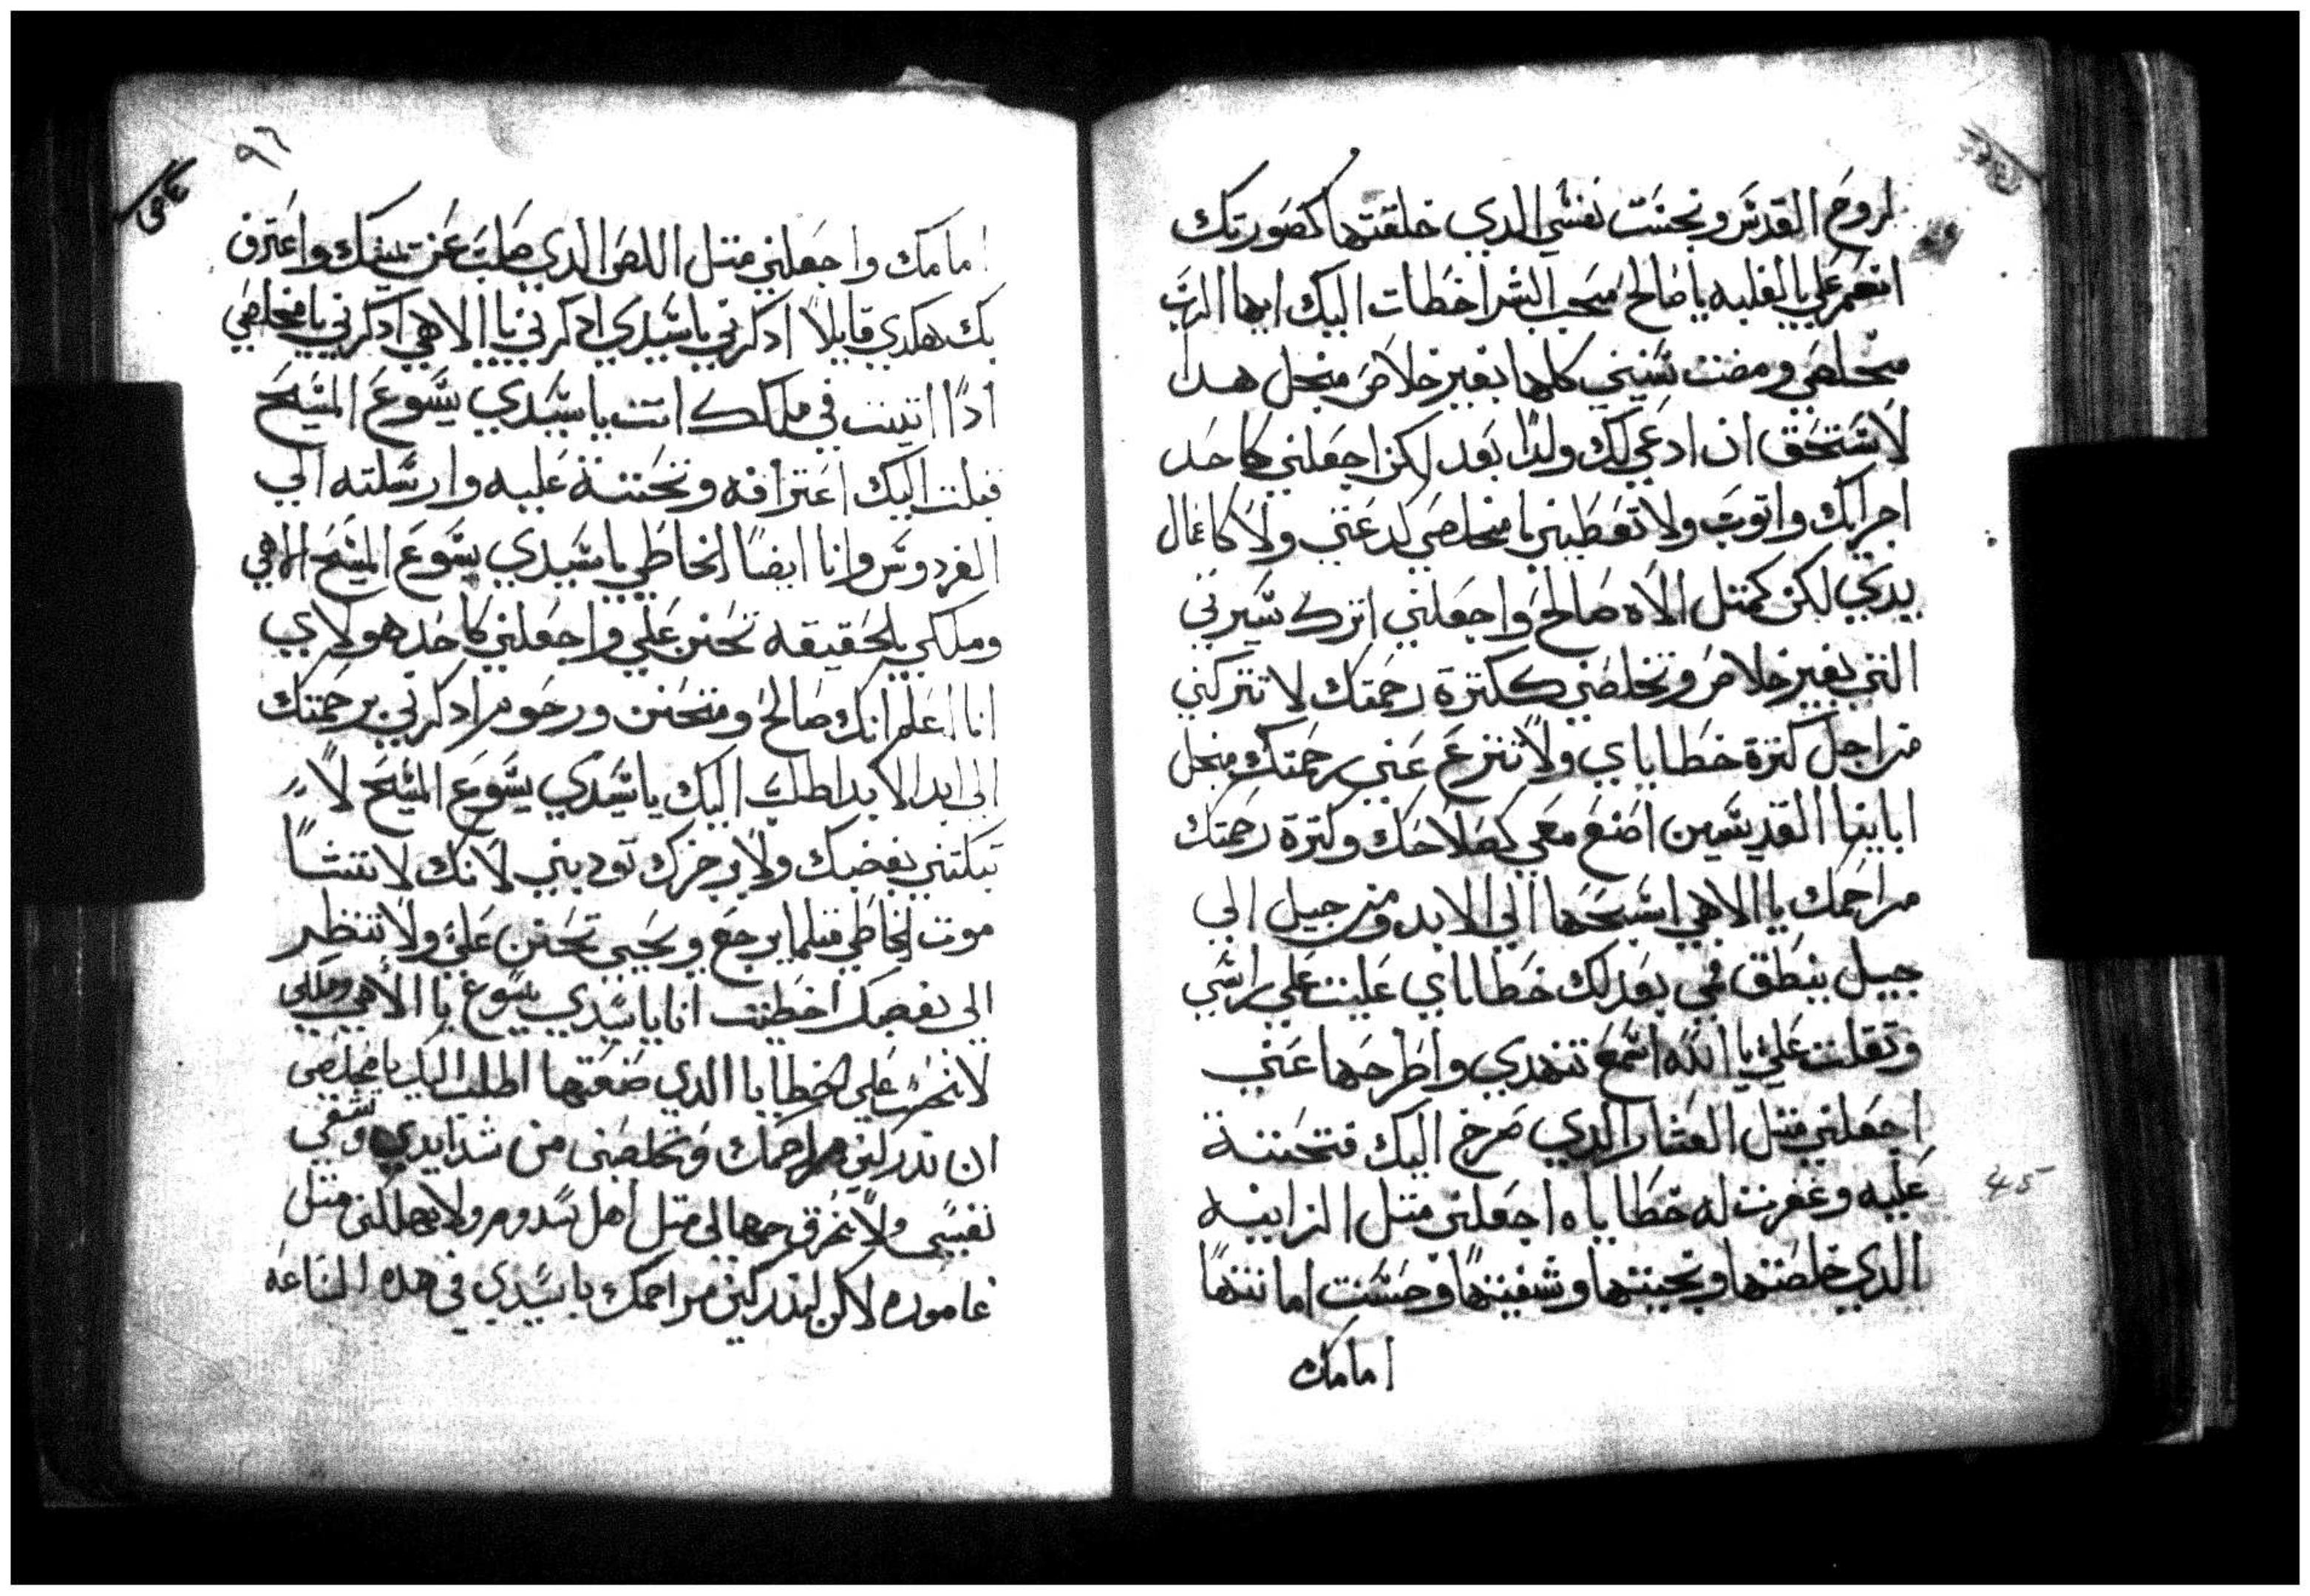 لروح القدس ونجست نفسي الدي خلقتها كصورتك
انعم علي بالغلبه يا صالح محب البشر اخطات اليك ايها الرب
مخلصي ومضت سنيني كلها بغير خلاص منجل هدا
لاستحق ان ادعي لك ولدًا بعد لكن اجعلني كاحد
اجرايك واتوب ولا تعطيني يا مخلصي لدعتي ولا كاعمال
يدي لكن كمتل الاه صالح واجعلني اترك سيرتي
التي بغير خلاص وتخلصني ككترة رحمتك لا تتركني
من اجل كترة خطاياي ولا تنزع عني رحمتك منجل
اباينا القديسين اصنع معي كصلاحك وكترة رحمتك
مراحمك يا الاهي اسبحها الي الابد ومن جيل الي
جيل ينطق فمي بعدلك خطاياي علت علي راسي
وتقلت علي يا الله اسمع تنهدي واطرحها عني
اجعلني متل العشار الدي صرخ اليك فتحننة
عليه وغفرت له خطاياه اجعلني متل الزانيه
الدي خلصتها ونجيتها وشفيتها وحسنت امانتها
امامك
45
٩٦
امامك واجعلني متل اللص الدي صلب عن يمينك واعترف
بك هكدي قايلاً ادكرني يا سيدي ادكرني يا الاهي ادكرني يا مخلصي
ادًا اتيت في ملكك انت يا سيدي يسوع المسيح
قبلت اليك اعترافه وتحننة عليه وارسلته الي
الفردوس وانا ايضًا الخاطي يا سيدي يسوع المسيح الاهي
وملكي بالحقيقه تحنن علي واجعلني كاحد هولاي
انا اعلم انك صالح ومتحنن ورحوم ادكرني برحمتك
الي ابد الابد اطلب اليك يا سيدي يسوع المسيح لا
تبكتني بغضبك ولا برجزك تودبني لانك لا تشا
موت الخاطي متلما يرجع ويحيي تحنن علي ولا تنظر
الي نقصي اخطيت انا يا سيدي يسوع يا الاهي وملكي
لا علي الخطايا الدي صنعتها اطلب اليك يا مخلصي
ان تدركني مراحمك وتخلصني من شدايدي وتشفي
نفسي ولا تحرق جهالي متل اهل سدوم ولا تهلكني متل
عاموره لاكن لتدركني مراحمك يا سيدي في هده الساعه